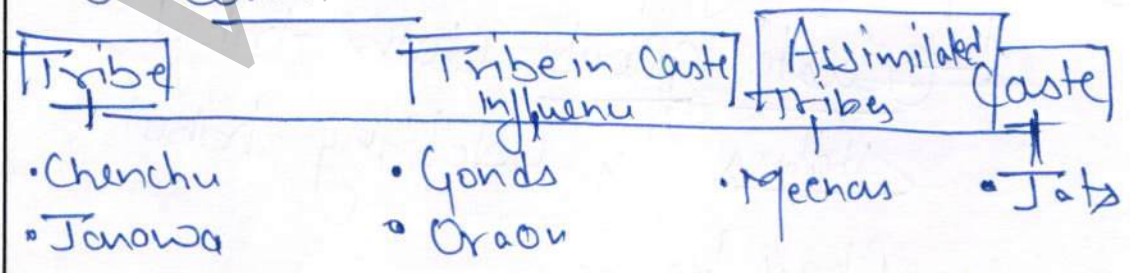 Tribe
Tribe in Caste influenu
Assimilated tribes
Caste
• Chenchu
• Jarowa
• Gonds
• Oraon
• Meenas
• Jats